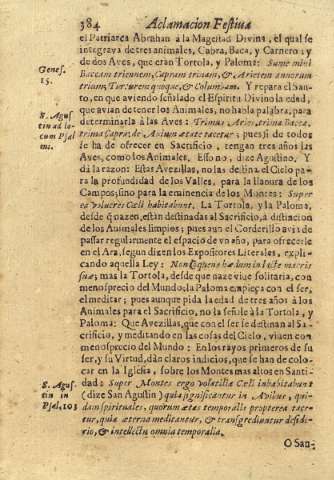 384 Aclamacion Festiva
el Patriarca Abrahan à la Magestad Divina, el qual se
integrava de tres animales, Cabra, Baca, y Carnero; y
de dos Aves, que eran Tortola, y Paloma: Sume mihi
Genes.
15.
Baccam triennem, Capram trimam, & Arietem annorum
trium, Turturem quoque, & Columbam. Y repara el San-
to, en que aviendo señalado el Espiritu Divino la edad,
que avian de tener los Animales, no habla palabra, para
S. Agus
tin ad lo-
cum Psal
mi.
determinarla à las Aves: Trimus Aries, trima Bacca,
trima Capra, de Avium ætate tacetur; pues si de todos
se ha de ofrecer en Sacrificio, tengan tres años las
Aves, como los Animales. Esso no, dize Agustino. Y
dà la razon: Estas Avezillas, no las destina el Cielo pa-
ra la profundidad de los Valles, para la llanura de los
Campos; sino para la eminencia de los Montes: Super
ea volucres Cœli habitabunt. La Tortola, y la Paloma,
desde q nazen, estàn destinadas al Sacrificio, a distincion
de los Animales limpios; pues aun el Corderillo avia de
passar regularmente el espacio de vn año, para ofrecerle
en el Ara, segun dizen los Expositores Literales, expli-
cando aquella Ley: Non coques hœdum in lacte matris
suæ; mas la Tortola, desde que naze vive solitaria, con
menosprecio del Mundo; la Paloma empieça con el ser,
el meditar; pues aunque pida la edad de tres años à los
Animales para el Sacrificio, no la señale à la Tortola, y
Paloma: Que Avezillas, que con el ser se destinan al Sa-
crificio, y meditando en las cosas del Cielo, viven con
menosprecio del Mundo: En los rayos primeros de su
ser, y su Virtud, dàn claros indicios, que se han de colo-
car en la Iglesia, sobre los Montes mas altos en Santi-
S. Agus-
tin in
Psal. 103
dad: Super Montes ergo volatilia Cœli inhabitabunt
(dize San Agustin) quia significantur in Avibus, qui-
dam spirituales, quorum ætas temporalis propterea tace-
tur, quia æterna meditantur, & transgrediuntur deside-
rio, & intellectu omnia temporalia.
O San-